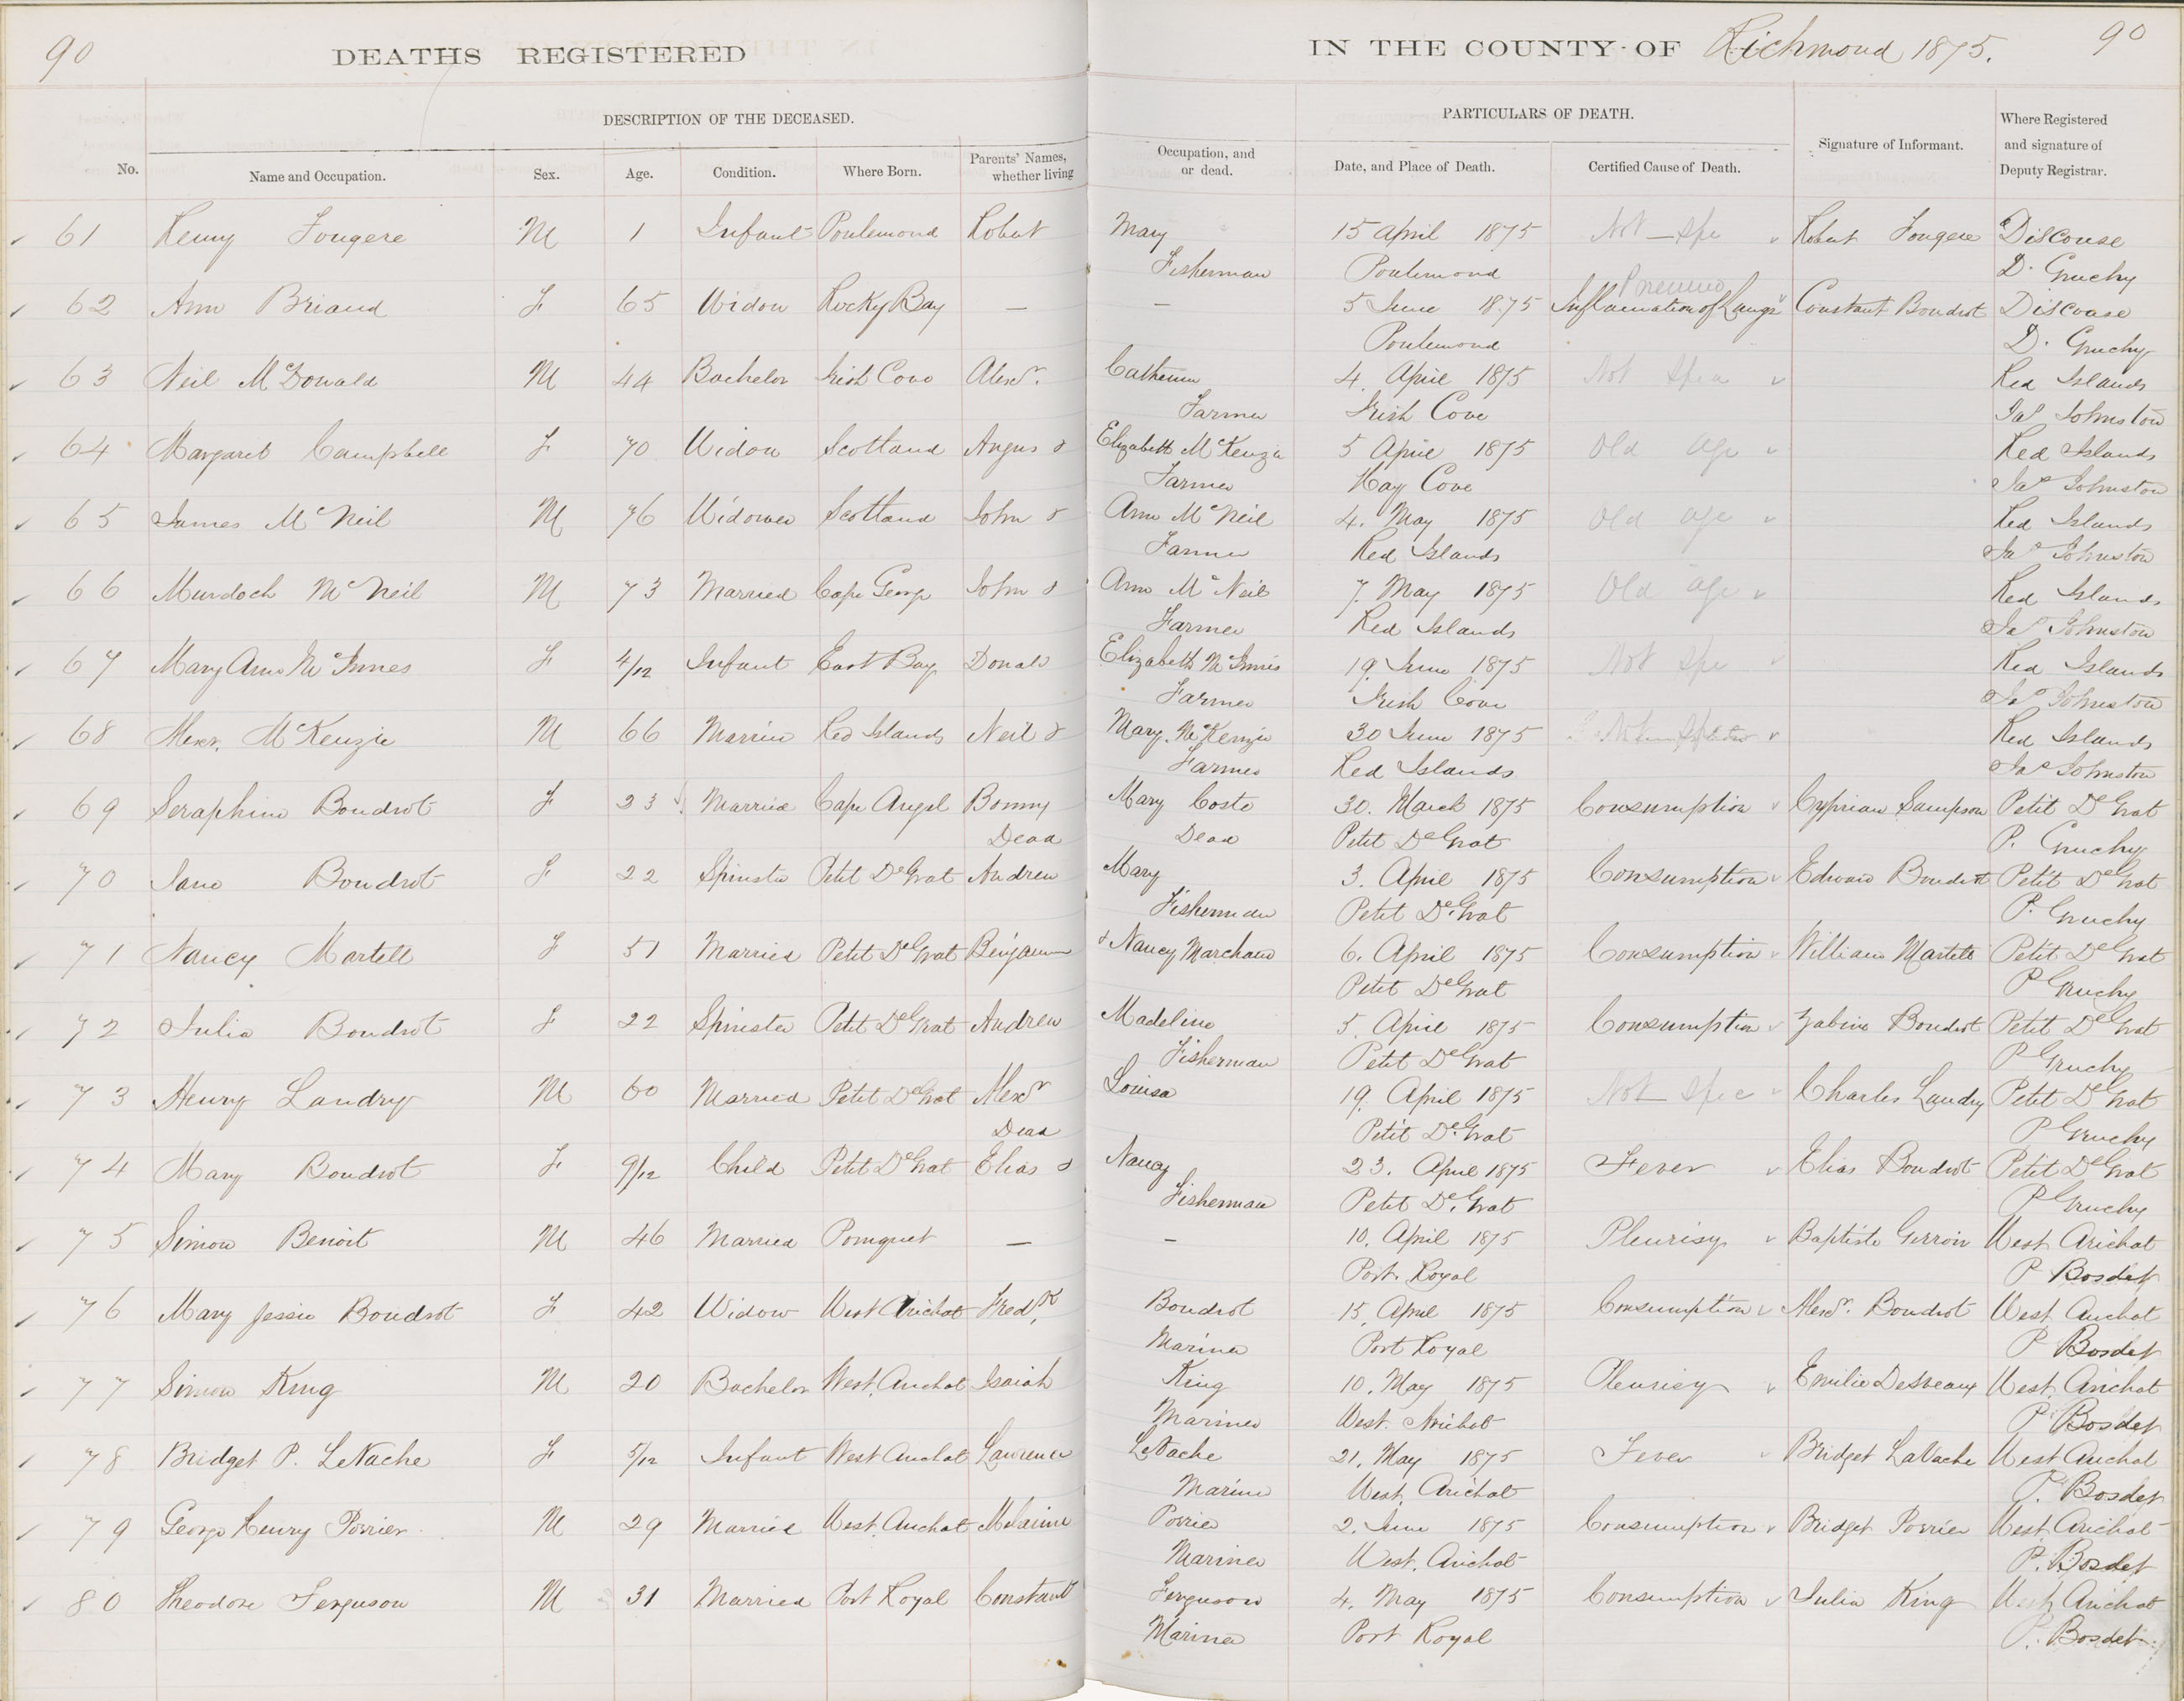 90
DEATHS REGISTERED
IN THE COUNTY OF Richmond 1875.
90
DESCRIPTION OF THE DECEASED.
PARTICULARS OF DEATH.
No. Name and Occupation. Sex. Age. Condition. Where Born. Parents' Names, whether living Occupation, and or dead. Date, and Place of Death. Certified Cause of Death. Signature of Informant. Where Registered and signature of Deputy Registrar.
61 Henry Fougere M 1 Infant Poulemond Robert Mary 15 April 1875 Not Spe Robert Fougere Discouse
Fisherman Poulemond D. Gruchy
Pneumo
62 Ann Briand F 65 Widow Rocky Bay — — 5 June 1875 Inflamation of Lungs Constant Boudrot Discouse
Poulemond D. Gruchy
63 Neil McDonald M 44 Bachelor Irish Cove Alexr. Catherine 4 April 1875 Not Spec Red Islands
Farmer Irish Cove Jas Johnston
64 Margaret Campbell F 70 Widow Scotland Angus & Elizabeth McKenzie 5 April 1875 Old Age Red Islands
Farmer Hay Cove Jas Johnston
65 James McNeil M 76 Widower Scotland John & Ann McNeil 4. May 1875 Old Age Red Islands
Farmer Red Islands Jas Johnston
66 Murdoch McNeil M 73 Married Cape George John & Ann McNeil 7. May 1875 Old Age Red Islands
Farmer Red Islands Jas Johnston
67 Mary Ann McInnes F 4/12 Infant East Bay Donald Elizabeth McInnis 19. June 1875 Not Spe Red Islands
Farmer Irish Cove Jas Johnston
68 Alexr. McKenzie M 66 Married Red Islands Neil & Mary McKenzie 30 June 1875 Red Islands
Farmer Red Islands Jas Johnston
69 Seraphine Boudrot F 23 Married Cape Augel Bonny Mary Coste 30. March 1875 Consumption Cyprian Sampson Petit DeGrat
Dead Dead Petit DeGrat P. Gruchy
70 Jane Boudrot F 22 Spinster Petit DeGrat Andrew Mary 3. April 1875 Consumption Edward Boudrot Petit DeGrat
Fisherman Petit DeGrat P. Gruchy
71 Nancy Martell F 51 Married Petit DeGrat Benjamin & Nancy Marchand 6. April 1875 Consumption William Martell Petit DeGrat
Petit DeGrat P Gruchy
72 Julia Boudrot F 22 Spinster Petit DeGrat Andrew Madeline 5. April 1875 Consumption Zabine Boudrot Petit DeGrat
Fisherman Petit DeGrat P Gruchy
73 Henry Landry M 60 Married Petit DeGrat Alexr Louisa 19. April 1875 Not Spec Charles Landry Petit DeGrat
Dead Petit DeGrat P Gruchy
74 Mary Boudrot F 9/12 Child Petit DeGrat Elias & Nancy 23. April 1875 Fever Elias Boudrot Petit DeGrat
Fisherman Petit DeGrat P Gruchy
75 Simon Benoit M 46 Married Pomquet — — 10. April 1875 Pleurisy Baptiste Gerroir West Arichat
Port Royal P Bosdet
76 Mary Jessie Boudrot F 42 Widow West Arichat Fredk. Boudrot 15. April 1875 Consumption Alexr. Boudrot West Arichat
Mariner Port Royal P Bosdet
77 Simon King M 20 Bachelor West Arichat Isaiah King 10. May 1875 Pleurisy Emilie DeSveaux West Arichat
Mariner West Arichat P Bosdet
78 Bridget P. LeVache F 5/12 Infant West Arichat Lawrence LeVache 21. May 1875 Fever Bridget LaVache West Arichat
Mariner West Arichat P. Bosdet
79 George Henry Poirier M 29 Married West Arichat Poirier 2. June 1875 Consumption Bridget Poirier West Arichat
Mariner West Arichat P. Bosdet
80 Theodore Ferguson M 31 Married Port Royal Constant Ferguson 4. May 1875 Consumption Julia King West Arichat
Mariner Port Royal P. Bosdet